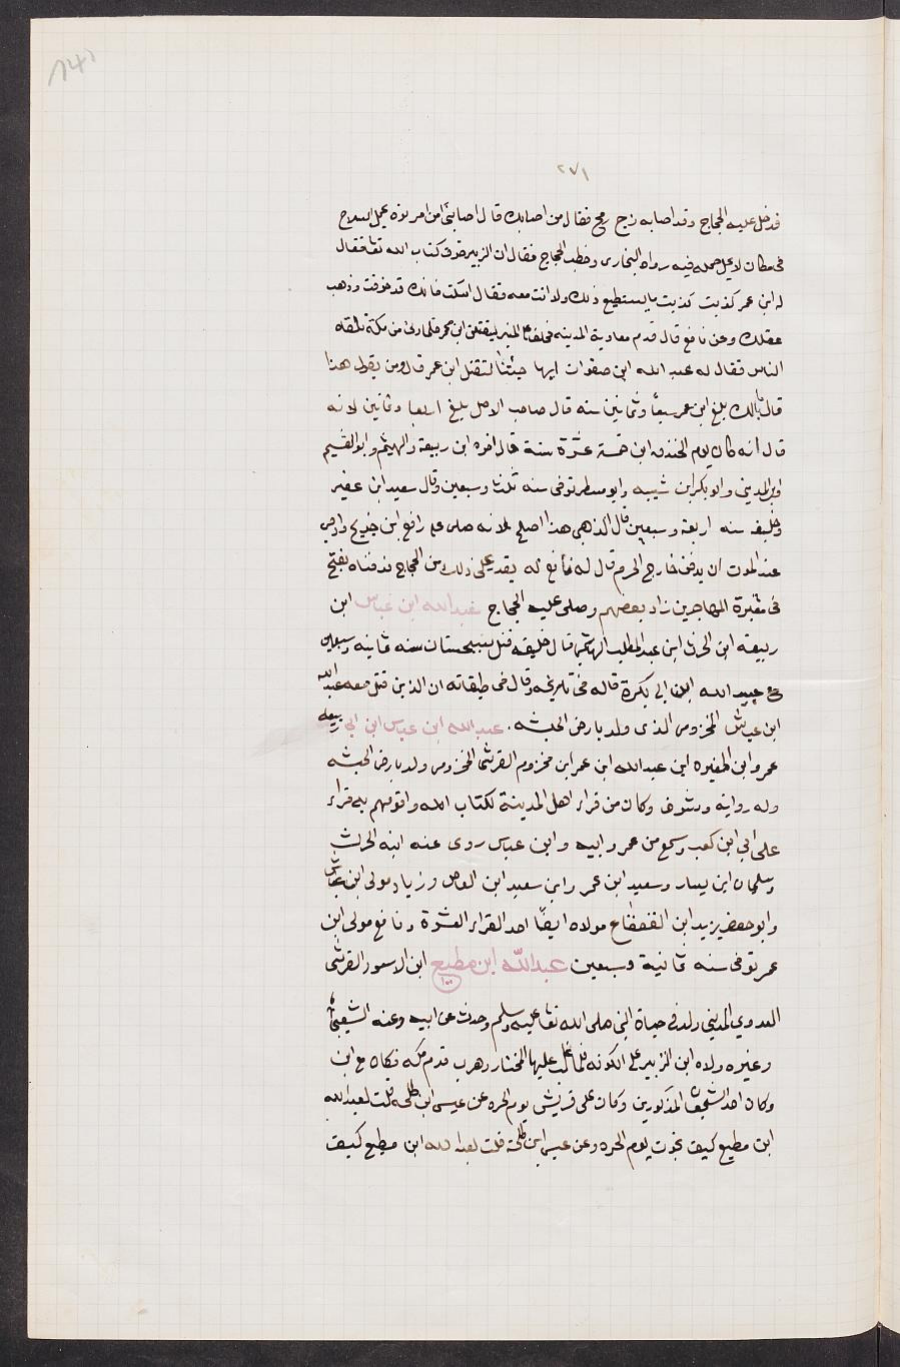 ٢٧١
فدخل عليه الحجاج وقد اصابه زج رمح فقال من اصابك قال اصابنى من امرتوه بحمل السلاح
فى مكان لا يحل حمله فيه رواه البخارى وخطب الحجاج فقال ان الزبير حرف كتاب الله تعا فقال
له ابن عمر كذبت كذبت ما يستطيع ذلك ولا انت معه فقال اسكت فانك قد خرفت وذهب
عقلك وعن نافع قال قدم معاوية المدينه فحلف على المنبر ليقتلن ابن عمر فلما دنى من مكة تلقاه
الناس فقال له عبد الله ابن صفوان ايها جئتنا لتقتل ابن عمر قال ومن يقول هذا
قال مالك بلغ ابن عمر سبعا وثمانين سنه قال صاحب الاصل بلغ اربعا وثمانين لانه
قال انه كان يوم الخندق ابن خمسة عشرة سنة قال ضمره ابن ربيعة والهيثم وابو
وابن المدينى وابو بكر ابن شيبه وابو مسهر توفى سنه ثلث وسبعين وقال سعيد ابن عفير
وخليفه سنه اربعة وسبعين قال الذهبى هذا اصح لانه صلى على رافع ابن خديج واوصى
عند الموت ان يدفن خارج الحرم قال له نافع لم يقدر على ذلك من الحجاج فدفناه بفخ
فى مقبرة المهاجرين زاد بعضهم وصلى عليه الحجاج عبد الله ابن عباس ابن
ربيعه ابن الحرث ابن عبد المطلب الهاشمى قال خليفه قتل بسجستان سنه ثمانيه وسبعين
مع عبيد الله ابن ابى بكرة قاله فى تاريخه وقال فى طبقاته ان الذين قتل معه عبد الله
ابن عياش المخزومى الذى ولد بارض الحبشه . عبد الله ابن عياس ابن ابى ربيعه
عمرو ابن المغيره ابن عبد الله ابن عمر ابن مخزوم القرشى المخزومى ولد بارض الحبشه
وله رواية وشرف وكان من قراء اهل المدينة لكتاب الله واقومهم به قراء
على ابى ابن كعب وسمع من عمر وابيه وابن عباس روى عنه ابنه الحرث
وسلمان ابن يسار وسعيد ابن عمر وابن سعيد ابن العاص وزياد مولى ابن عياش
وابو جعفر يزيد ابن القعقاع مولاه ايضا احد القراء العشرة ونافع مولى ابن
عمر توفى سنه ثمانية وسبعين عبد الله ابن مطيع ابن الاسود القرشى
العدوى المدينى ولد فى حياة النبى صلى الله تعا عليه وسلم وحدث عن ابيه وعنه الشعبى
وغيره ولاه ابن الزبير على الكوفه فلما غلب عليها المختار وهرب قدم مكه فكان مع ابن
وكان احد الشجعان المذكورين وكان على قريش يوم الحره عن عيسى ابن طلحه قلت لعبد الله
ابن مطيع كيف نجوت يوم الحره وعن عيسى ابن طلحة قلت لعبد الله ابن مطيع كيف